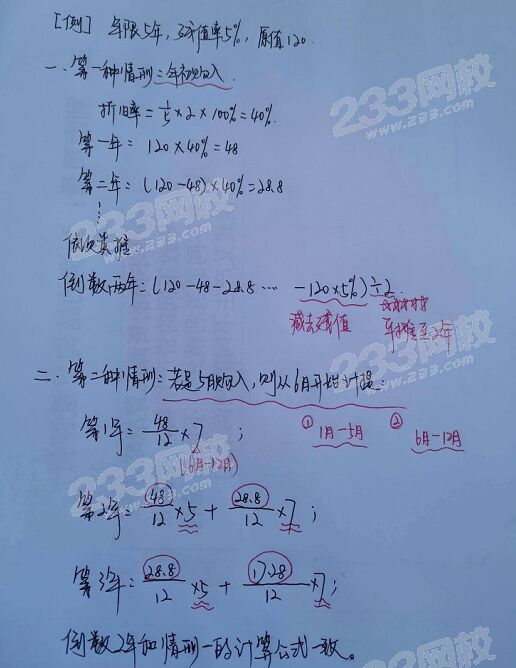 [例] 年限5年，残值率5%，原值120.
一、第一种情形：年初购入.
折旧率=1/5×2×100%=40%.
第一年= 120×40%=48
第二年= (120-48)×40%=28.8
⋮
依次类推
倒数两年=(120-48-28.8 … -120×5%)÷2
减去残值 平摊至2年
二、第二种情形：若是5月购入，则从6月开始计提：
第1年= 48/12 ×7 ; ① 1月-5月 ② 6月-12月
(6月-12月)
第2年= 48/12 ×5 + 28.8/12 ×7 ;
第3年= 28.8/12 ×5 + 17.28/12 ×7 ;
倒数2年和情形一的计算公式一致。
233网校
www.233.com
233网校
www.233.com
233网校
www.233.com
233网校
www.233.com